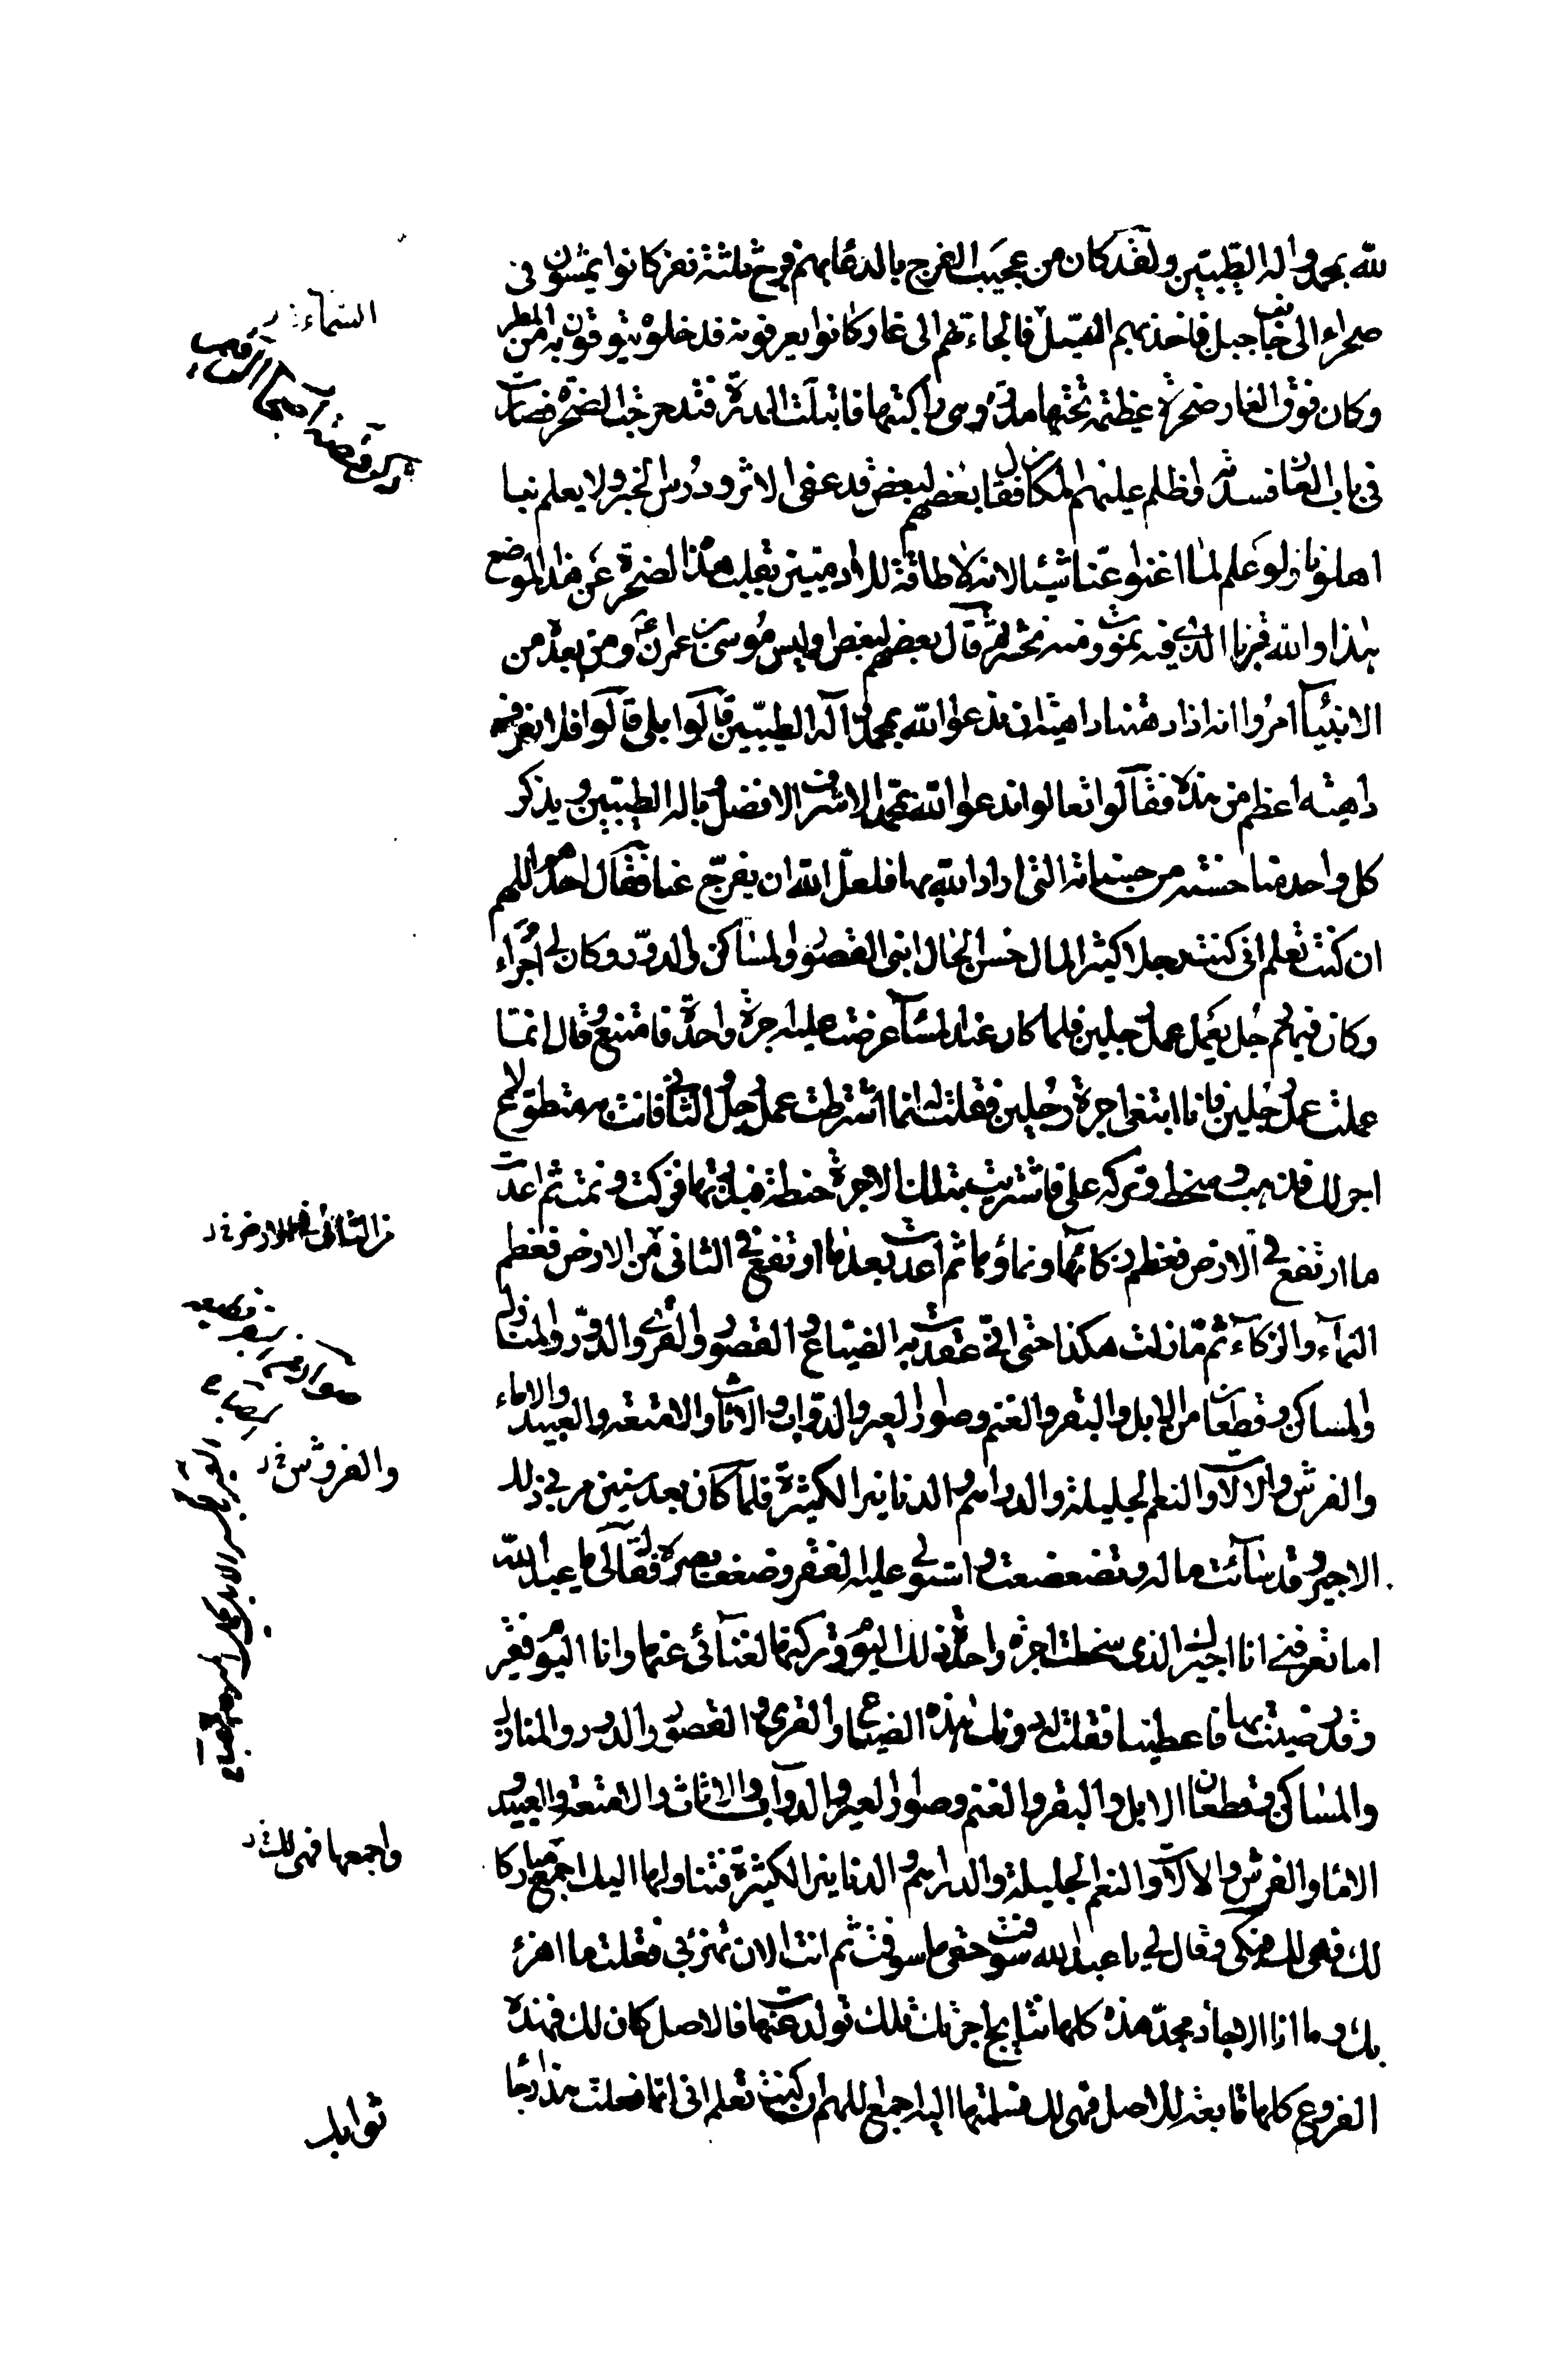 لله بمحمد واله الطيبين ولقد كان من عجيب الفرج بالدعا بهم فرج ثلثة نفر كانوا يمشون فى
صحراء الى جانب جبل فاخذ بهم السيل فالجاءتهم الى غار كانوا يعرفونه فدخلوه يتوقون به من المطر
وكان فوق الغار صخرة عظيمة تحتها مدرة وهى راكبتها فابتلت المدرة فتدحرجت الصخرة فصارت
فى باب الغار فسدته واظلم عليهم المكان فقال بعضهم لبعض قد عفى الاثر ودرس الخبر ولا يعلم بنا
اهلونا ولو علم لما اغنوا عنا شيئا لانه لا طاقة للادميين بقلب هذا الصخرة عن هذا الموضع
هذا والله قبرنا الذى فيه نموت ومنه نحشر ثم قال بعضهم لبعض اوليس موسى بن عمران ع ومن بعده من
الانبياء امروا انه اذا دهتنا داهية ان ندعوا الله بمحمد واله الطيبين قالوا بلى قالوا فلا نعرف
داهية اعظم من هذه فقالوا تعالوا ندعوا الله بمحمد الاشرف الافضل وباله الطيبين ويذكر
كل واحد منا حسنة من حسناته التى اراد الله بها فلعل الله ان يفرج عنا فقال احدهم اللهم
ان كنت تعلم انى كنت رجلا كثير المال حسن الحال ابنى القصور والمساكن والدور وكان لى اجراء
وكان فيهم رجل يعمل عمل رجلين فلما كان عند المساء عرضت عليه اجرة واحدة فامتنع وقال انما
عملت عمل رجلين فانا ابتغى اجرة رجلين فقلت له انما اشترطت عمل رجل والثانى فانت به متطوع لا
اجر لك فذهب وسخط وتركه على فاشتريت بتلك الاجرة حنطة فبذرتها فزكت ونمت ثم اعدت
ما ارتفع فى الارض فعظم زكائها ونماؤها ثم اعدت بعد ما ارتفع فى الثانى من الارض فعظم
النماء والزكاء ثم ما زلت هكذا حتى انى عقدت به الضياع والقصور والقرى والدور والمنازل
والمساكن وقطعان من الابل والبقر والغنم وصوار العير والدواب والاثاث والامتعة والعبيد والاماء
والفرش والالات والنعم الجليلة والدراهم والدنانير الكثيرة فلما كان بعد سنين مر بى ذلك
الاجير وقد سائت حاله وتضعضعت واستولى عليه الفقر وضعف بصره فقال لى يا عبد الله
اما تعرفنى انا اجيرك الذى سخطت اجرة واحدة ذلك اليوم وتركتها لغنائى عنها وانا اليوم فقير
وقد رضيت بها فاعطنيها فقلت له دونك هذه الضياع والقرى والقصور والدور والمنازل
والمساكن وقطعان الابل والبقر والغنم وصوار العير والدواب والاثاث والامتعة والعبيد
الاماء والفرش والالات والنعم الجليلة والدراهم والدنانير الكثيرة فتناولها اليك اجمع مباركا
لك فهى لك فبكى وقال لى يا عبد الله سوفت حقى ما سوفت ثم انت الان تهزء بى فقلت ما اهزء
بك وما انا الا جاد مجد هذه كلها نتايج اجرتك تلك تولدت عنها فالاصل كان لك فهذه
الفروع كلها تابعة للاصل فهى لك فسلمتها اليه اجمع اللهم ان كنت تعلم انى انما فعلت هذا رجا
السماء
ذكر قصة اصحاب الرقيم
من الثانى فى الارض
والفروش
واجمعها فهى لك
ثوابك